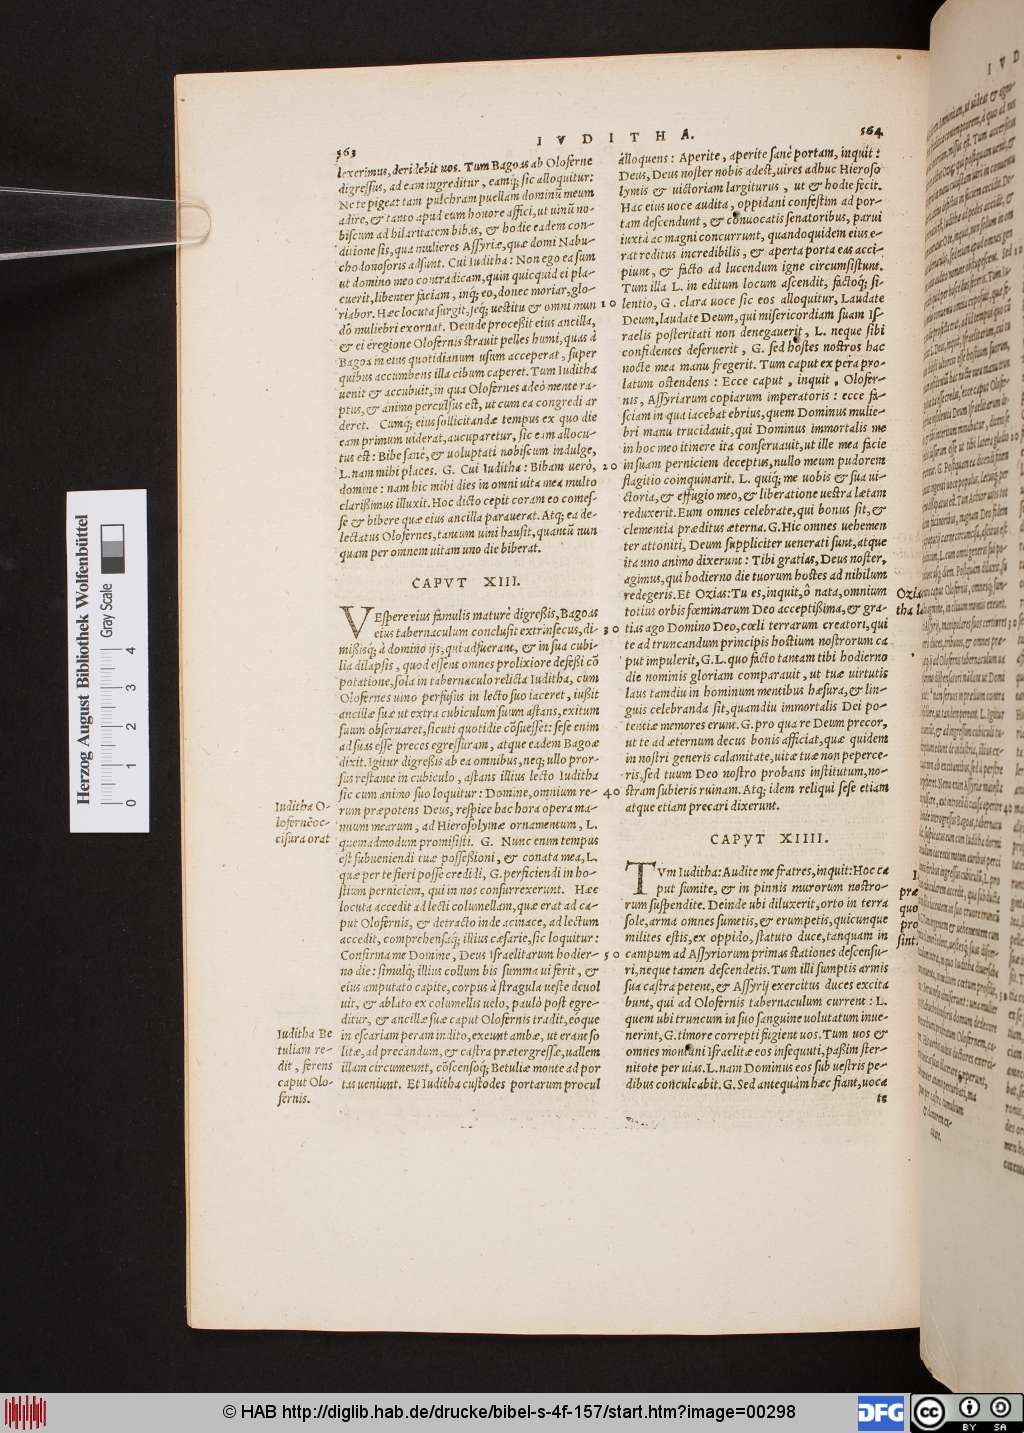 IVDITHA.
563
lexerimus, deridebit uos. Tum Bagoas ab Oloferne
digressus, ad eam ingreditur, eamq́; sic alloquitur:
Ne te pigeat tam pulchram puellam dominũ meum
adire, & tanto apud eum honore affici, ut uinũ no-
biscum ad hilaritatem bibas, & hodie eadem con-
ditione sis, qua mulieres Assyriæ, quæ domi Nabu-
chodonosoris adsunt. Cui Iuditha: Non ego ea sum
ut domino meo contradicam, quin quicquid ei pla-
cuerit, libenter faciam, inq́; eo, donec moriar, glo-
riabor. Hæc locuta surgit, seq́; uestitu & omni mun
dõ muliebri exornat. Deinde processit eius ancilla,
& ei è regione Olofernis strauit pelles humi, quas à
Bagoa in eius quotidianum usum acceperat, super
quibus accumbens illa cibum caperet. Tum Iuditha
uenit & accubuit, in qua Olofernes adeò mente ra-
ptus, & animo perculsus est, ut cum ea congredi ar
deret. Cumq́; eius sollicitandæ tempus ex quo die
eam primum uiderat, aucuparetur, sic eam allocu-
tus est: Bibe sanè, & uoluptati nobiscum indulge,
L. nam mihi places. G. Cui Iuditha: Bibam uerò,
domine: nam hic mihi dies in omni uita mea multo
clarissimus illuxit. Hoc dicto cepit coram eo comes-
se & bibere quæ eius ancilla parauerat. Atq; ea de-
lectatus Olofernes, tantum uini hausit, quantũ nun
quam per omnem uitam uno die biberat.
CAPVT XIII.
VEspere eius famulis maturè digressis, Bagoas
eius tabernaculum conclusit extrinsecus, di-
missisq́; à domino ijs, qui adfuerant, & in sua cubi-
lia dilapsis, quod essent omnes prolixiore defessi cõ
potatione, sola in tabernaculo relicta Iuditha, cum
Olofernes uino perfusus in lecto suo iaceret, iussit
ancillæ suæ ut extra cubiculum suum astans, exitum
suum obseruaret, sicuti quotidie cõsuesset: sese enim
ad suas esse preces egressuram, atque eadem Bagoæ
dixit. Igitur digressis ab ea omnibus, neq; ullo pror-
sus restante in cubiculo, astans illius lecto Iuditha
sic cum animo suo loquitur: Domine, omnium re-
rum præpotens Deus, respice hac hora opera ma-
nuum mearum, ad Hierosolymæ ornamentum, L.
quemadmodum promisisti. G. Nunc enim tempus
est subueniendi tuæ possessioni, & conata mea, L.
quæ per te fieri posse credidi, G. perficiendi in ho-
stium perniciem, qui in nos consurrexerunt. Hæc
locuta accedit ad lecti columellam, quæ erat ad ca-
put Olofernis, & detracto inde acinace, ad lectum
accedit, comprehensaq́; illius cæsarie, sic loquitur:
Confirma me Domine, Deus Israelitarum hodier-
no die: simulq́; illius collum bis summa ui ferit, &
eius amputato capite, corpus à stragula ueste deuol
uit, & ablato ex columellis uelo, paulò post egre-
ditur, & ancillæ suæ caput Olofernis tradit, eoque
in escariam peram indito, exeunt ambæ, ut erant so
litæ, ad precandum, & castra prætergressæ, uallem
illam circumeunt, cõscensoq́; Betuliæ monte ad por
tas ueniunt. Et Iuditha custodes portarum procul
Iuditha O-
lofernẽ oc-
cisura orat
Iuditha Be
tuliam re-
dit, ferens
caput Olo-
fernis.
10
20
30
40
50
564
alloquens: Aperite, aperite sanè portam, inquit:
Deus, Deus noster nobis adest, uires adhuc Hieroso
lymis & uictoriam largiturus, ut & hodie fecit.
Hac eius uoce audita, oppidani confestim ad por-
tam descendunt, & conuocatis senatoribus, parui
iuxtà ac magni concurrunt, quandoquidem eius e-
rat reditus incredibilis, & aperta porta eas acci-
piunt, & facto ad lucendum igne circumsistunt.
Tum illa L. in editum locum ascendit, factoq́; si-
lentio, G. clara uoce sic eos alloquitur, Laudate
Deum, laudate Deum, qui misericordiam suam Is-
raelis posteritati non denegauerit, L. neque sibi
confidentes deseruerit, G. sed hostes nostros hac
nocte mea manu fregerit. Tum caput ex pera pro-
latum ostendens: Ecce caput, inquit, Olofer-
nis, Assyriarum copiarum imperatoris: ecce fa-
sciam in qua iacebat ebrius, quem Dominus mulie-
bri manu trucidauit, qui Dominus immortalis me
in hoc meo itinere ita conseruauit, ut ille mea facie
in suam perniciem deceptus, nullo meum pudorem
flagitio coinquinarit. L. quiq́; me uobis & sua ui-
ctoria, & effugio meo, & liberatione uestra lætam
reduxerit. Eum omnes celebrate, qui bonus sit, &
clementia præditus æterna. G. Hic omnes uehemen
ter attoniti, Deum suppliciter uenerati sunt, atque
ita uno animo dixerunt: Tibi gratias, Deus noster,
agimus, qui hodierno die tuorum hostes ad nihilum
redegeris. Et Ozias: Tu es, inquit, ô nata, omnium
totius orbis fœminarum Deo acceptissima, & gra-
tias ago Domino Deo, cœli terrarum creatori, qui
te ad truncandum principis hostium nostrorum ca
put impulerit, G. L. quo facto tantam tibi hodierno
die nominis gloriam comparauit, ut tuæ uirtutis
laus tamdiu in hominum mentibus hæsura, & lin-
guis celebranda sit, quamdiu immortalis Dei po-
tentiæ memores erunt. G. pro qua re Deum precor,
ut te ad æternum decus bonis afficiat, quæ quidem
in nostri generis calamitate, uitæ tuæ non peperce-
ris, sed tuum Deo nostro probans institutum, no-
stram subieris ruinam. Atq; idem reliqui sese etiam
atque etiam precari dixerunt.
CAPVT XIIII.
TVm Iuditha: Audite me fratres, inquit: Hoc ca
put sumite, & in pinnis murorum nostro-
rum suspendite. Deinde ubi diluxerit, orto in terra
sole, arma omnes sumetis, & erumpetis, quicunque
milites estis, ex oppido, statuto duce, tanquam in
campum ad Assyriorum primas stationes descensu-
ri, neque tamen descendetis. Tum illi sumptis armis
sua castra petent, & Assyrij exercitus duces excita
bunt, qui ad Olofernis tabernaculum current: L.
quem ubi truncum in suo sanguine uolutatum inue-
nerint, G. timore correpti fugient uos. Tum uos &
omnes montani Israelitæ eos insequuti, passim ster-
nitote per uias. L. nam Dominus eos sub uestris pe-
dibus conculcabit. G. Sed antequàm hæc fiant, uoca
te
Herzog August Bibliothek Wolfenbüttel
Gray Scale
0 1 2 3 4
© HAB http://diglib.hab.de/drucke/bibel-s-4f-157/start.htm?image=00298
DFG
cc
BY SA